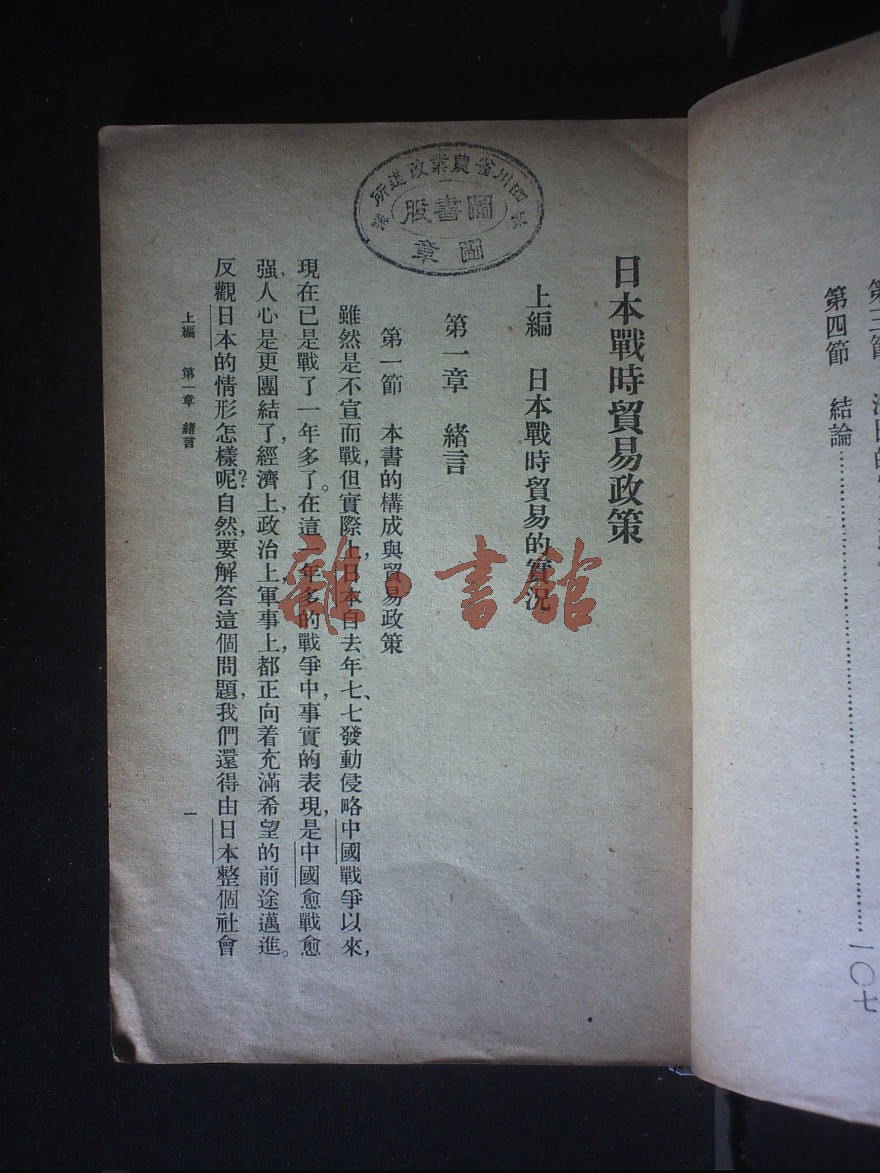 第四節　結論……一〇七
日本戰時貿易政策
上編　日本戰時貿易的實況
第一章　緒言
第一節　本書的構成與貿易政策
雖然是不宣而戰,但實際上,日本自去年七、七發動侵略中國戰爭以來,
現在已是戰了一年多了。在這一年多的戰爭中,事實的表現,是中國愈戰愈
强,人心是更團結了,經濟上,政治上,軍事上,都正向着充滿希望的前途邁進。
反觀日本的情形怎樣呢?自然,要解答這個問題,我們還得由日本整個社會
上編　第一章　緒言
一
四川省農業改進所
圖書股
圖章
雜·書館